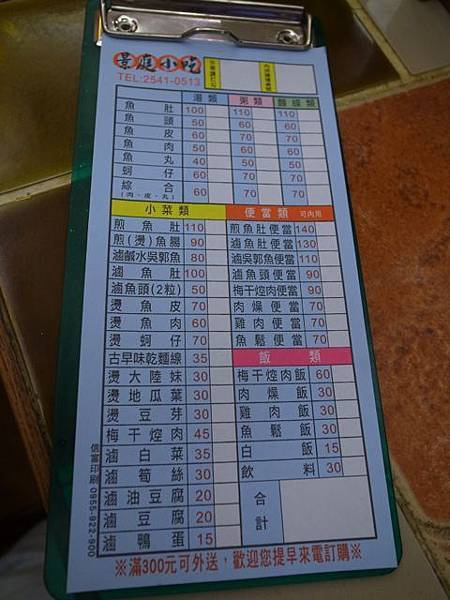 景庭小吃
TEL:2541-0513
湯類 粥類 麵線類
魚肚 100 110 110
魚頭 50 60 60
魚皮 60 70 70
魚肉 50 60 60
魚丸 40 50 50
蚵仔 60 70 70
綜合(肉、皮、丸) 60 70 70
小菜類
煎魚肚 110
煎(燙)魚腸 90
滷鹹水吳郭魚 80
滷魚肚 100
滷魚頭(2粒) 50
燙魚皮 70
燙魚肉 60
燙蚵仔 70
古早味乾麵線 35
燙大陸妹 30
燙地瓜葉 30
燙豆芽 30
梅干焢肉 45
滷白菜 35
滷筍絲 30
滷油豆腐 20
滷豆腐 20
滷鴨蛋 15
便當類 可內用
煎魚肚便當 140
滷魚肚便當 130
滷吳郭魚便當 110
滷魚頭便當 90
梅干焢肉便當 90
肉燥便當 70
雞肉便當 70
魚鬆便當 70
飯類
梅干焢肉飯 60
肉燥飯 30
雞肉飯 30
魚鬆飯 30
白飯 15
飲料 30
合計
※滿300元可外送，歡迎您提早來電訂購※
信富印刷 0955-922-900